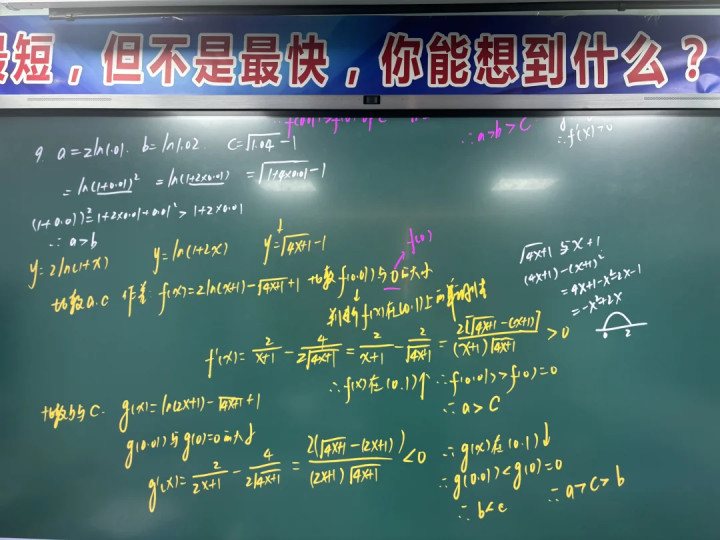 最短，但不是最快，你能想到什么？
∴a>b>c
∴f'(x)>0
9. a=2ln1.01. b=ln1.02. c=√1.04-1
=ln(1+0.01)² =ln(1+2×0.01) =√1+4×0.01-1
(1+0.01)²=1+2×0.01+0.01²>1+2×0.01
∴a>b
y=2ln(1+x) y=ln(1+2x) y=√4x+1-1
f(0)
比较a.c 作差 f(x)=2ln(x+1)-√4x+1+1 比较f(0.01)与0的大小
判断f(x)在(0,1)上的单调性
√4x+1与x+1
(4x+1)-(x+1)²
=4x+1-x²-2x-1
=-x²+2x
0 2
f'(x)=2/(x+1)-4/(2√4x+1)=2/(x+1)-2/√4x+1=2[√4x+1-(x+1)]/((x+1)√4x+1)>0
∴f(x)在(0.1)↑ ∴f(0.01)>f(0)=0
∴a>c
比较b与c. g(x)=ln(2x+1)-√4x+1+1
g(0.01)与g(0)=0的大小
g'(x)=2/(2x+1)-4/(2√4x+1)=2(√4x+1-(2x+1))/((2x+1)√4x+1)<0
∴g(x)在(0.1)↓
∴g(0.01)<g(0)=0
∴b<c
∴a>c>b